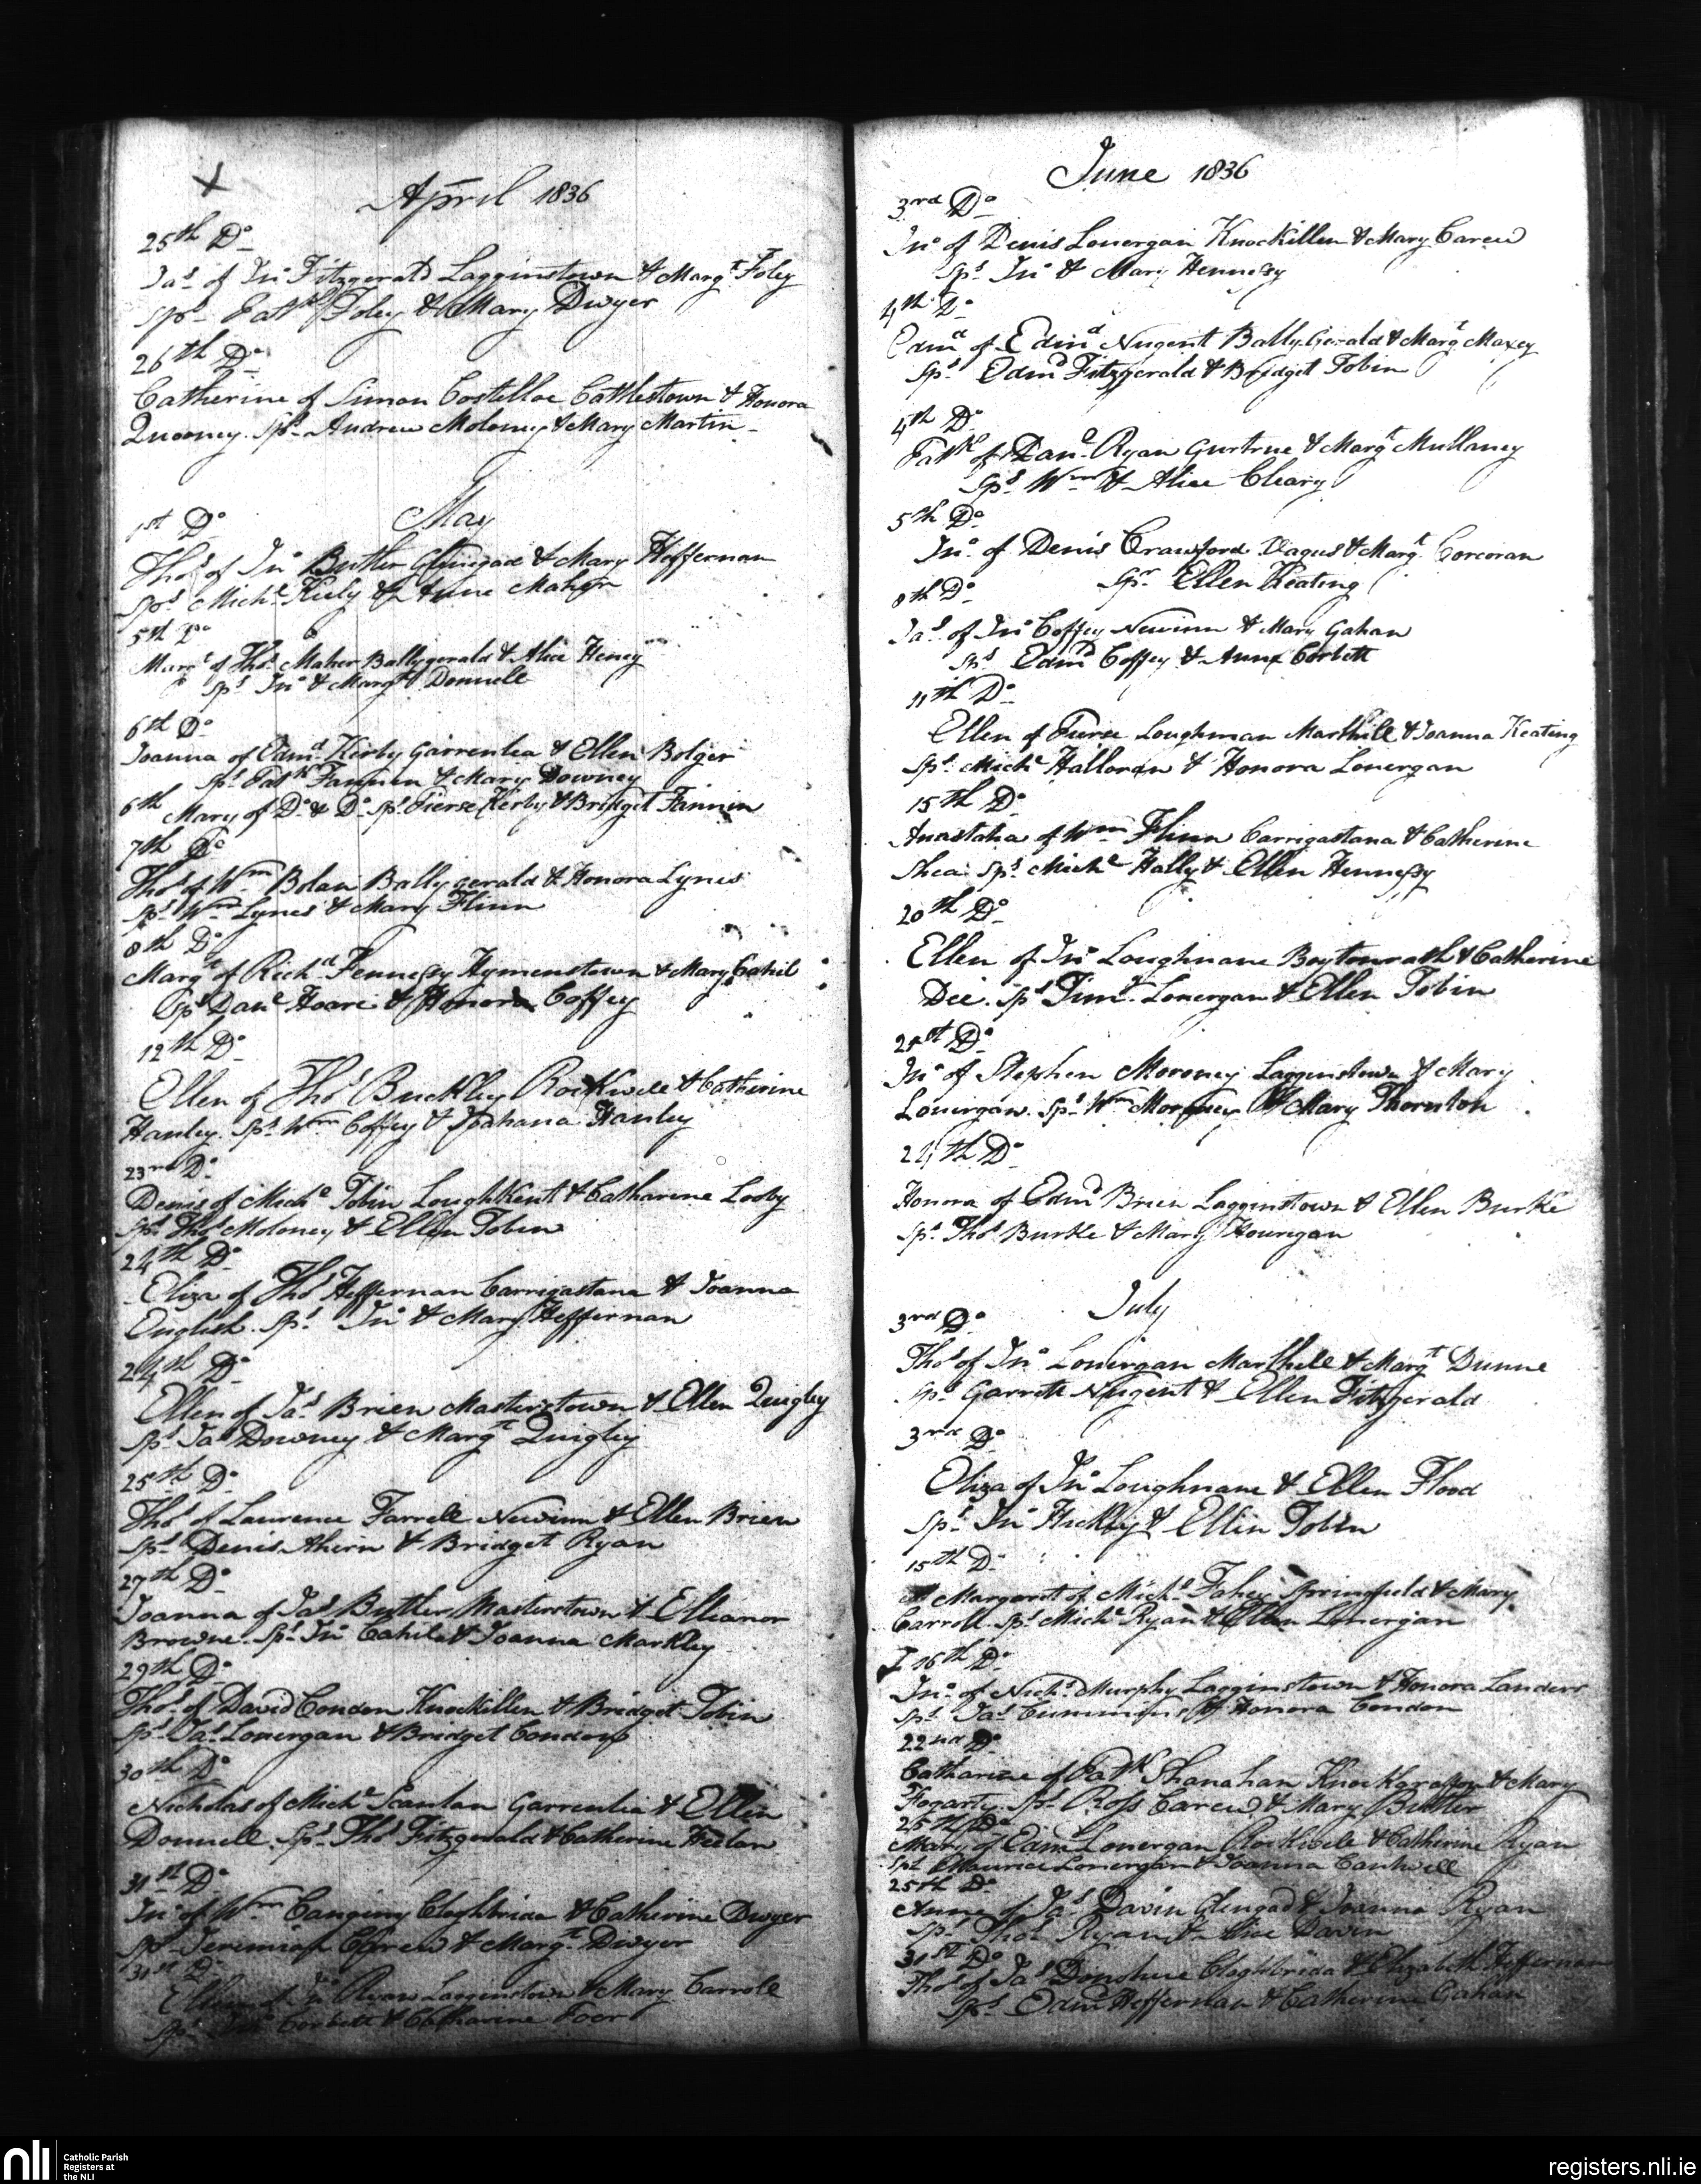 April 1836
25th Do
Jas of Jno Fitzgerald Lagginstown & Margt Foley
Sps Patk Foley & Mary Dwyer
26th Do
Catherine of Simon Costelloe Cattlestown & Honora
Sps Andrew Moloney & Mary Martin
May
1st Do
Thos of Jno Butler & Mary Heffernan
Sps Michl Kiely & Anne Maher
5th Do
Margt of Thos Maher Ballygerald & Alice Heney
Sps Jno & Margt Donnell
6th Do
Joanna of Edmd Kirby Garrenlea & Ellen Bolger
Sps Patk Fannen & Mary Downey
6th Mary of Do & Do Sps Pierse Kirby & Bridget Fannin
7th Do
Thos of Wm Bolan Ballygerald & Honora Lynes
Sps Wm Lynes & Mary Flinn
8th Do
Margt of Richd Fennessy Hymenstown & Mary Cahil
Sps Danl Hoare & Honora Coffey
12th Do
Ellen of Thos Buckley Rockwell & Catherine
Hanley. Sps Wm Coffey & Johana Hanley
23rd Do
Denis of Michl Tobin LoughKent & Catharine Looby
Sps Thos Moloney & Ellen Tobin
24th Do
Eliza of Thos Heffernan Carrigastana & Joanna
English. Sps Jno & Mary Heffernan
24th Do
Ellen of Jas Brien Masterstown & Ellen Quigley
Sps Jas Downey & Margt Quigley
25th Do
Thos of Laurence Farrell Newinn & Ellen Brien
Sps Denis Ahern & Bridget Ryan
27th Do
Joanna of Jas Butler Masterstown & Elleanor
Browne. Sps Jno Cahil & Joanna Markley
29th Do
Thos of David Condon Knockillen & Bridget Tobin
Sps Jas Lonergan & Bridget Condon
30th Do
Nicholas of Michl Scanlan Garrenlia & Ellen
Donnell. Sps Thos Fitzgerald & Catherine Heelan
31st Do
Jno of Wm Cloghbrida & Catherine Dwyer
Sps Jeremiah Carew & Margt Dwyer
31st Do
Ellen of Jno Ryan Lagginstown & Mary Carroll
Sps Corbett & Catharine Foor
June 1836
3rd Do
Jno of Denis Lonergan Knockillen & Mary Carew
Sps Jno & Mary Hennessy
4th Do
Edmd of Edmd Nugent BallyGerald & Margt Maxey
Sps Edmd Fitzgerald & Bridget Tobin
4th Do
Patk of Danl Ryan Gurtrue & Margt Mullaney
Sps Wm & Alice Cleary
5th Do
Jno of Denis Crawford & Margt Corcoran
Spr Ellen Keating
8th Do
Jas of Jno Coffey Newinn & Mary Gahan
Sps Edmd Coffey & Anne Corbett
11th Do
Ellen of Pierse Loughman Marlhill & Joanna Keating
Sps Michl Halloran & Honora Lonergan
15th Do
Anastatia of Wm Flinn Carrigastana & Catherine
Shea Sps Michl Hally & Ellen Hennessy
20th Do
Ellen of Jno Loughnane Boytonrath & Catherine
Dee. Sps Timy Lonergan & Ellen Tobin
21st Do
Jno of Stephen Moroney Lagginstown & Mary
Lonergan. Sps Wm Moroney & Mary Thornton
24th Do
Honora of Edmd Brien Lagginstown & Ellen Burke
Sps Thos Burke & Mary Hourigan
July
3rd Do
Thos of Jno Lonergan Marlhill & Margt Dunne
Sps Garrett Nugent & Ellen Fitzgerald
3rd Do
Eliza of Jno Loughnane & Ellen Flood
Sps Jno Hickey & Ellin Tobin
15th Do
Margaret of Michl Fahey Springfield & Mary
Carroll. Sps Michl Ryan & Ellen Lonergan
16th Do
Jno of Nichs Murphy Lagginstown & Honora Landers
Sps Jas Cummins & Honora Condon
22nd Do
Catharine of Patk Shanahan Knockgraffon & Mary
Fogarty. Sps Ross Carew & Mary Butler
25th Do
Mary of Edmd Lonergan Rockwell & Catherine Ryan
Sps Maurice Lonergan & Joanna Cantwell
25th Do
Anne of Jas Davin Glengad & Joanna Ryan
Sps Thos Ryan & Alice Davin
31st Do
Thos of Jas Cloghbrida & Elizabeth Heffernan
Sps Edmd Heffernan & Catherine Gahan
nli
Catholic Parish
Registers at
the NLI
registers.nli.ie